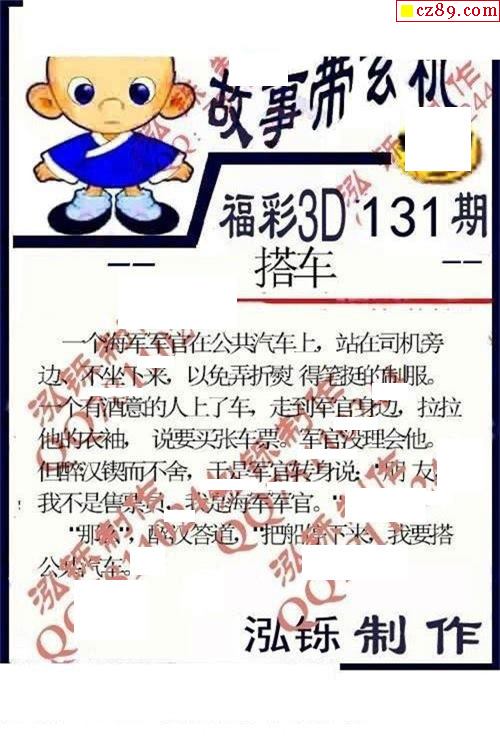 cz89.com
故事带玄机
福彩3D 131期
-- 搭车 --
一个海军军官在公共汽车上，站在司机旁
边、不坐下来，以免弄折熨 得笔挺的制服。
一个有酒意的人上了车，走到军官身边，拉拉
他的衣袖， 说要买张车票。军官没理会他。
但醉汉锲而不舍，于是军官转身说："朋 友，
我不是售票员、我是海军军官。"
"那么"，醉汉答道，"把船停下来，我要搭
公共汽车。
泓铄制作